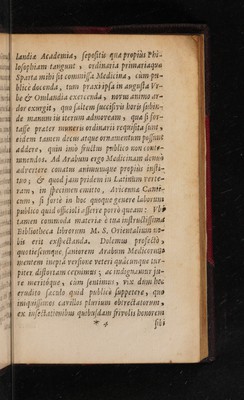 landiæ Academia, sepositis quæ propius Phi-
losophiam tangunt, ordinaria primariaque
Sparta mihi sit commissa Medicina, cùm pu-
blicè docenda, tum praxi ipsa in augusta Ur-
be & Omlandia exercenda, novus animo ar-
dor exurgit, quo saltem succisivis horis subin-
de manum iis iterum admoveam, quæ si for-
tasse præter muneris ordinarii requisita sunt,
eidem tamen decus atque ornamentum possunt
addere, quin imò fructus publico non conte-
mnendos. Ad Arabum ergo Medicinam denuò
advertere conatus animumque propius insti-
tuo; & quod jam pridem in Latinum verte-
ram, in specimen emitto, Avicennæ Canti-
cum, si fortè in hoc quoque genere laborum
publico quid officioli afferre porrò queam:
tamen commoda materies è tua instructissima
Bibliotheca librorum M. S. Orientalium no-
bis erit exspectanda. Dolemus profectò,
quotiescumque saniorem Arabum Medicorum
mentem inepta versione veteri quàcunque tur-
piter distortam cernimus; ac indignamur ju-
re meritoque, cùm sentimus, vix dum hoc
erudito sæculo quid publicè suppetere, quo
iniquissimos cavillos plurium obtrectatorum,
ex insectationibus quibusdam frivolis honorem
* 4 sibi